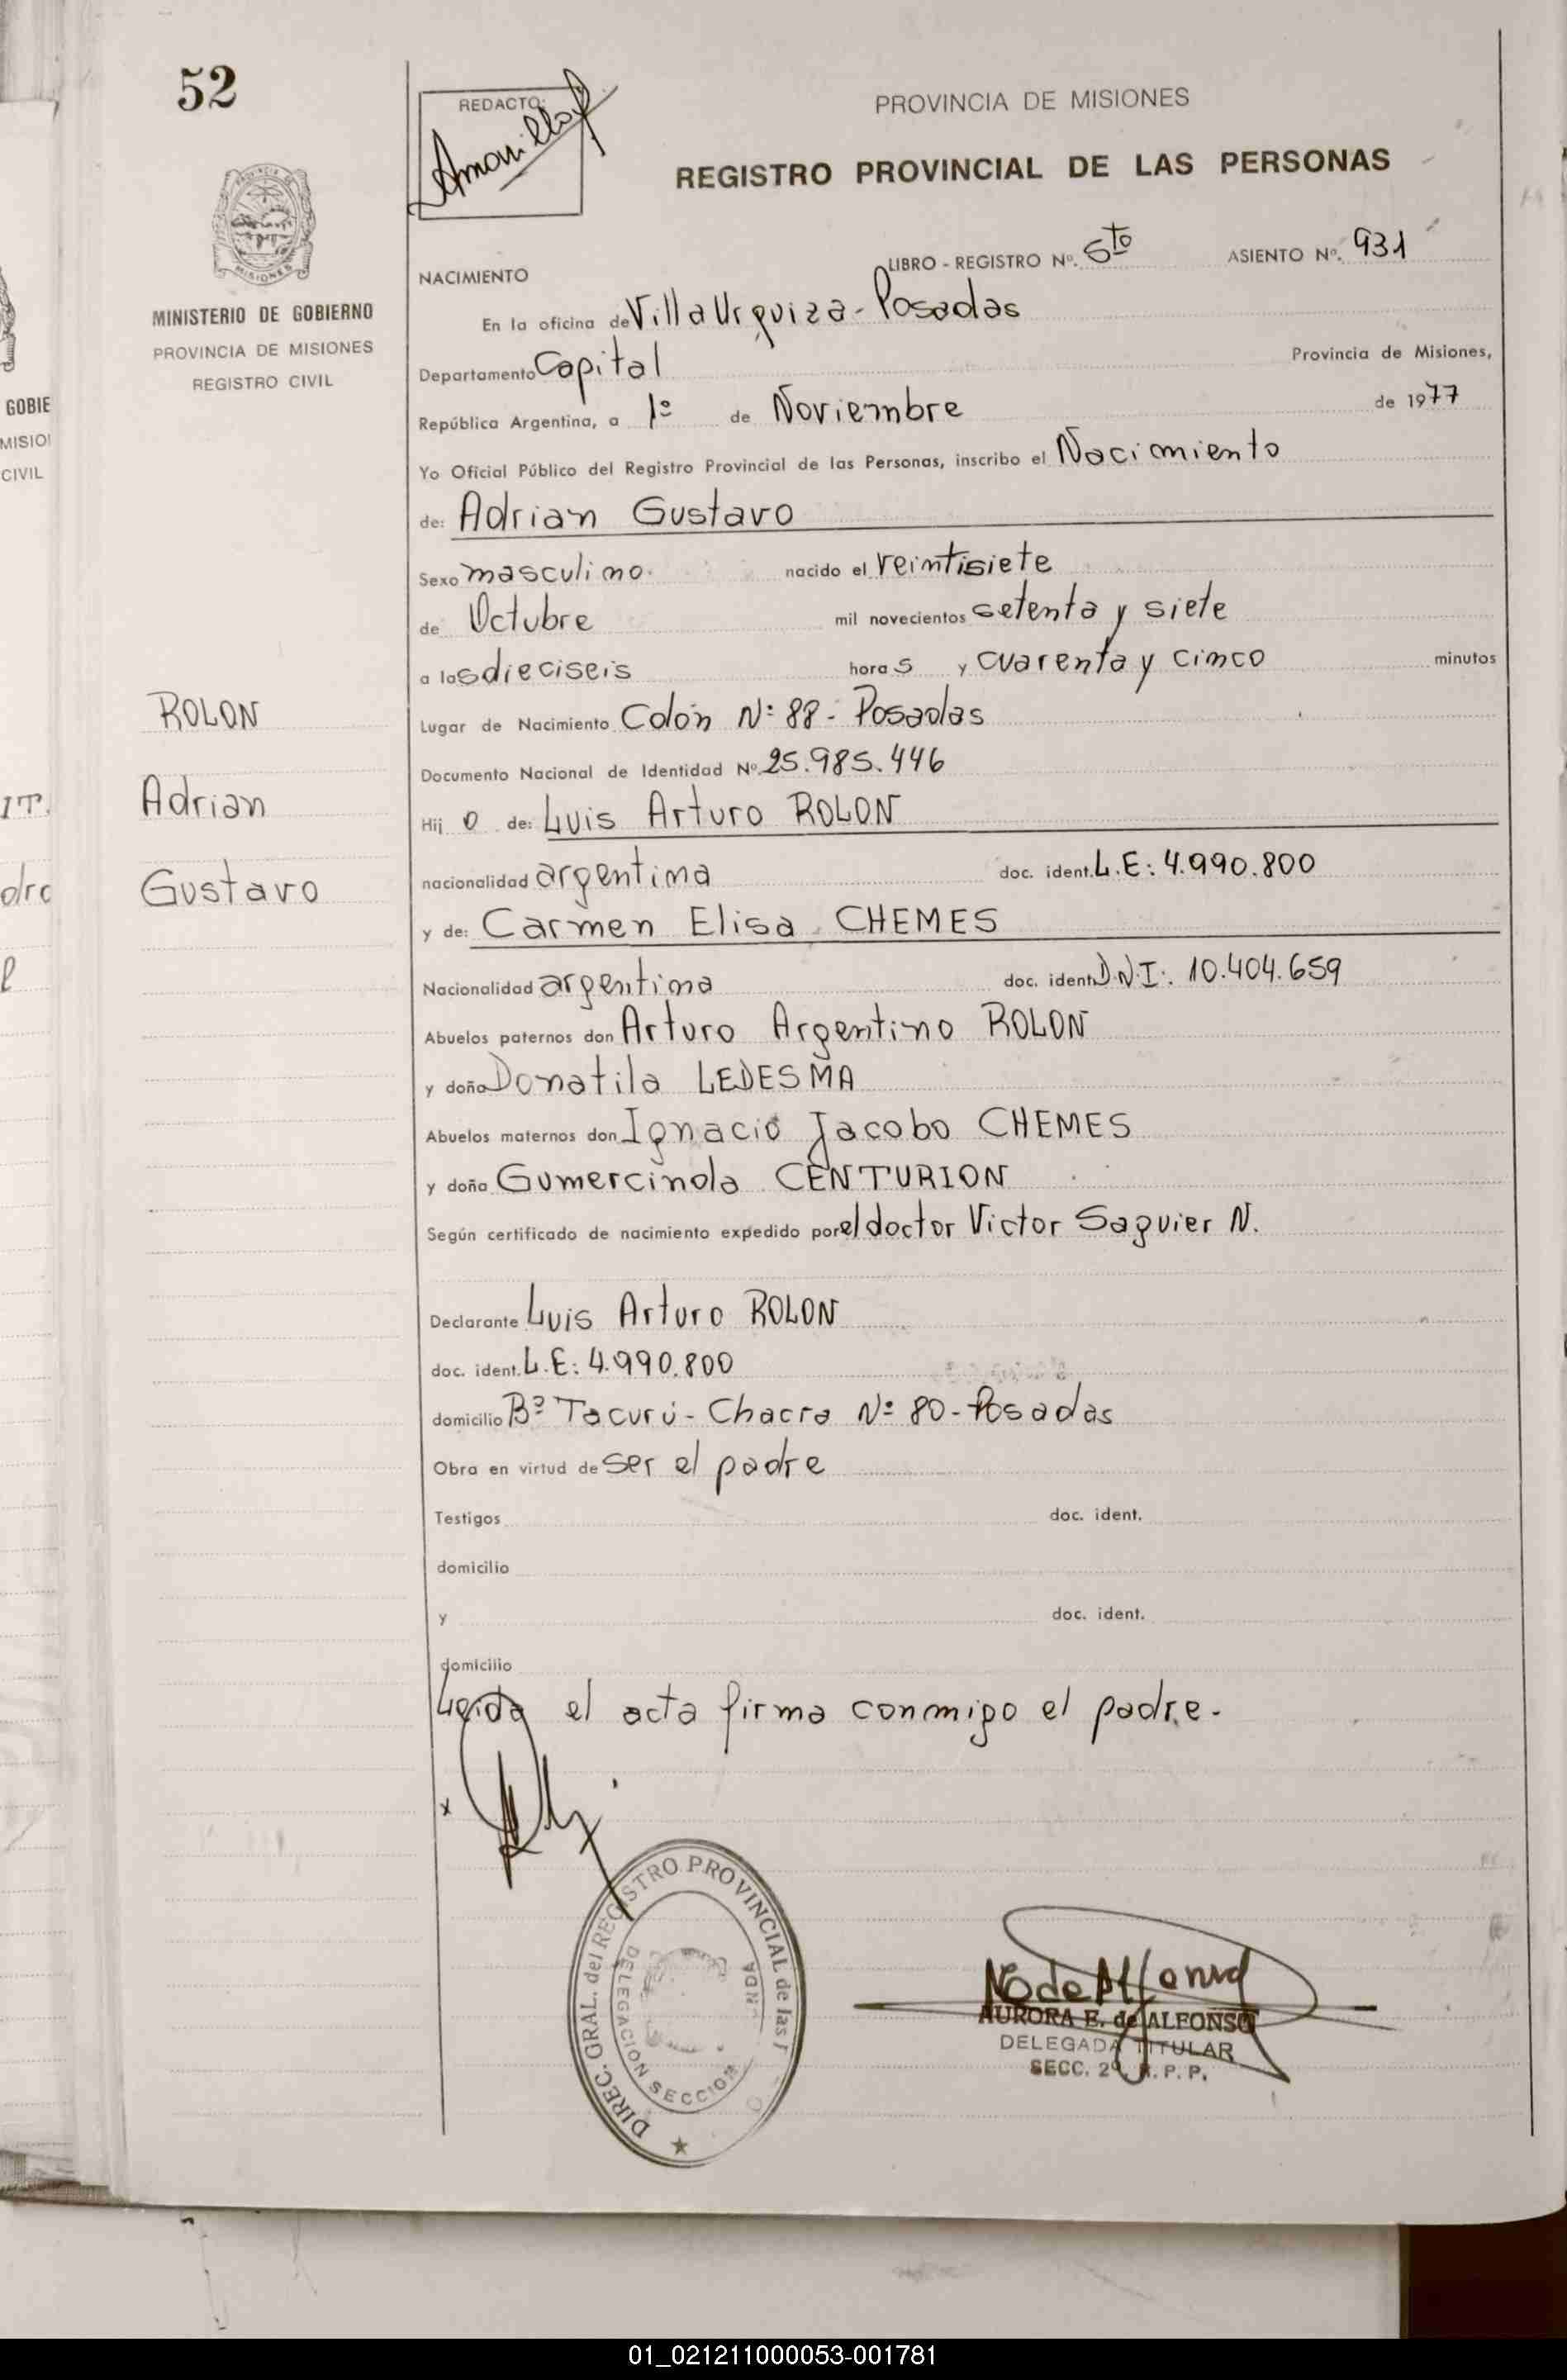 52
REDACTO:
PROVINCIA DE MISIONES
REGISTRO PROVINCIAL DE LAS PERSONAS
LIBRO - REGISTRO Nº. 5to ASIENTO Nº. 931
NACIMIENTO
MINISTERIO DE GOBIERNO
PROVINCIA DE MISIONES
REGISTRO CIVIL
En la oficina de Villa Urquiza - Posadas
Departamento Capital Provincia de Misiones,
República Argentina, a 1º de Noviembre de 1977
Yo Oficial Público del Registro Provincial de las Personas, inscribo el Nacimiento
de: Adrian Gustavo
Sexo masculino. nacido el veintisiete
de Octubre mil novecientos setenta y siete
a las dieciseis horas y cuarenta y cinco minutos
ROLON
Lugar de Nacimiento Colón Nº 88 - Posadas
Documento Nacional de Identidad Nº 25.985.446
Adrian
Hijo de: Luis Arturo ROLON
Gustavo
nacionalidad argentina doc. ident. L.E: 4.990.800
y de: Carmen Elisa CHEMES
Nacionalidad argentina doc. ident. D.N.I: 10.404.659
Abuelos paternos don Arturo Argentino ROLON
y doña Donatila LEDESMA
Abuelos maternos don Ignacio Jacobo CHEMES
y doña Gumercinda CENTURION
Según certificado de nacimiento expedido por el doctor Victor Saguier N.
Declarante Luis Arturo ROLON
doc. ident. L.E: 4.990.800
domicilio Bº Tacurú - Chacra Nº 80 - Posadas
Obra en virtud de ser el padre
Testigos doc. ident.
domicilio
y doc. ident.
domicilio
Leida el acta firma conmigo el padre.
x
DIREC. GRAL. del REGISTRO PROVINCIAL de las
DELEGACION SECCION
AURORA E. de ALFONSO
DELEGADA TITULAR
SECC. 2º R. P. P.
GOBIE
MISIO
CIVIL
IT.
01_021211000053-001781